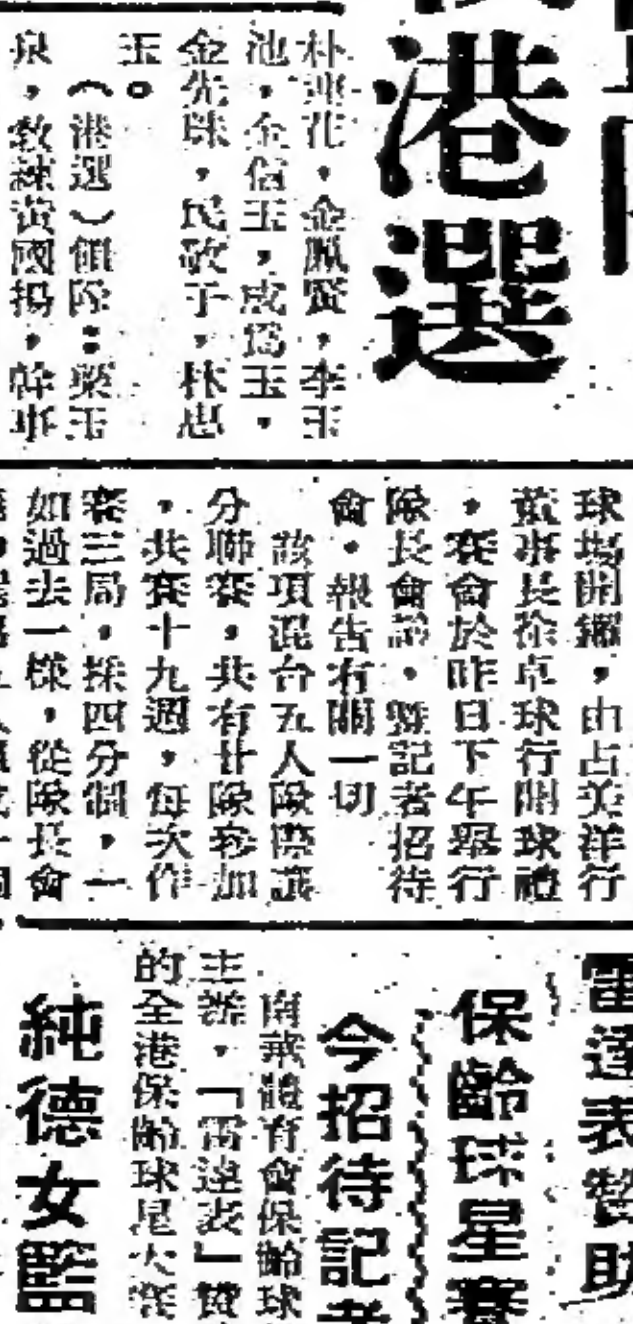 港選
朴
花,金鳳賢,李玉
池,金信玉,成爲玉,
金先珠,民敬子,林忠
玉。
(港選)領隊:梁玉
泉,教練黃國揚,幹事
球場開鑼,由占美洋行
董事長徐卓球行開球禮
,賽會於昨日下午舉行
隊長會議,暨記者招待
會,報告有關一切
該項混合五人隊際讓
分聯賽,共有廿隊參加
,共賽十九週,每次作
賽三局,採四分制,一
如過去一樣,從隊長會
雷達表贊助
保齡球星賽
今招待記者
南華體育會保齡球
主辦,「雷達表」贊
的全港保齡球星大賽
純德女籃